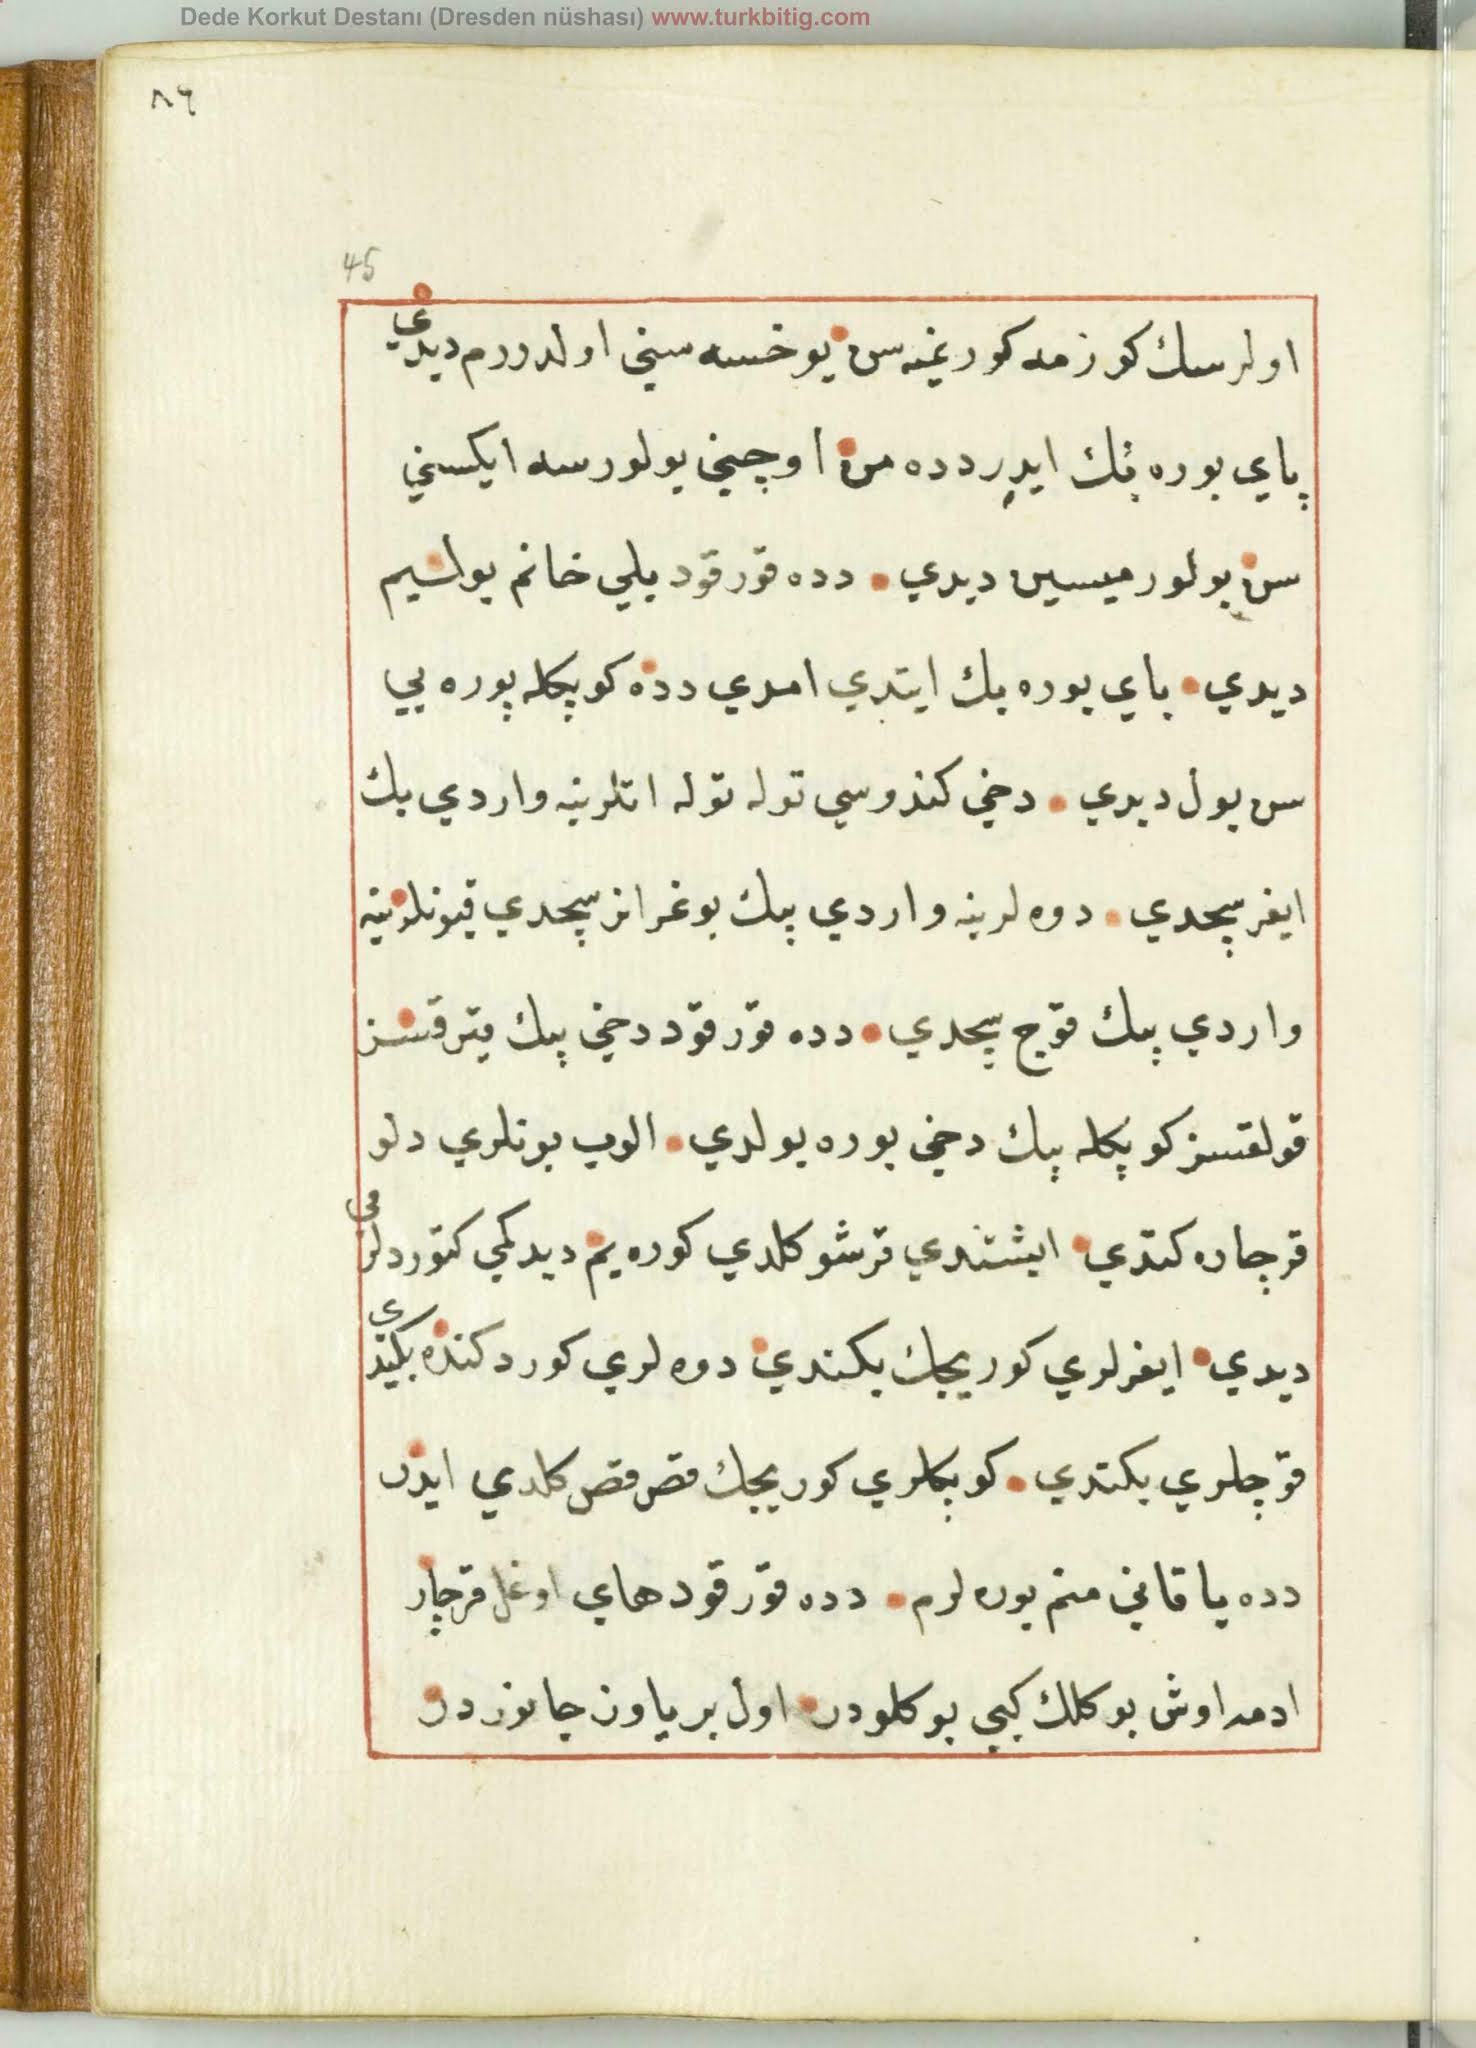 Dede Korkut Destanı (Dresden nüshası) www.turkbitig.com
٨٩
45
اولرسك كوزمه كورنميه سن يوخسه سني اولدوررم ديدي
پاي بوره بيك ايدر دده من اوچيني بولورسه ايكسني
سن بولورميسين ديدي دده قورقود بلي خانم بولسيم
ديدي باي بوره بك ايتدي امدي دده كوپكله پوره يي
سن بول ديدي دخي كندوسي توله توله اتلرينه واردي بيك
ايغر سچدي دوه لرينه واردي بيك بوغرانز سچدي قيونلرينه
واردي بيك قوچ سچدي دده قورقود دخي بيك قيرقسز
قولقسز كوپكله بيك دخي بوره بولدي الوب بونلري دلو
قرچاره كتدي ايشتدي قرشو كلدي كوره يم ديدكمي كتوردلرمي
ديدي ايغرلري كوريجك بكندي دوه لري كوردكنده بكندي
قوچلري بكندي كوپكلري كوريجك قص قص كلدي ايدر
دده يا قاني منم بوره لرم دده قورقود هاي اوغل قرچار
ادمه اوش بوكلك كبي بوكلودر اول بر ياوز جانوردر